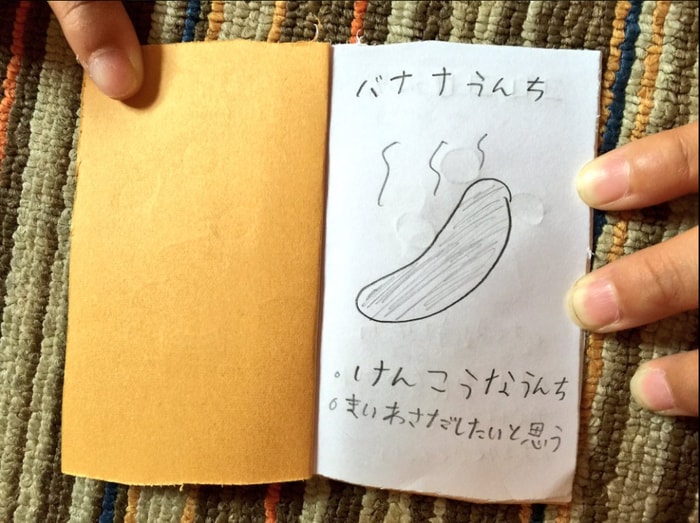 バナナうんち
。けんこうなうんち
。まいあさだしたいと思う